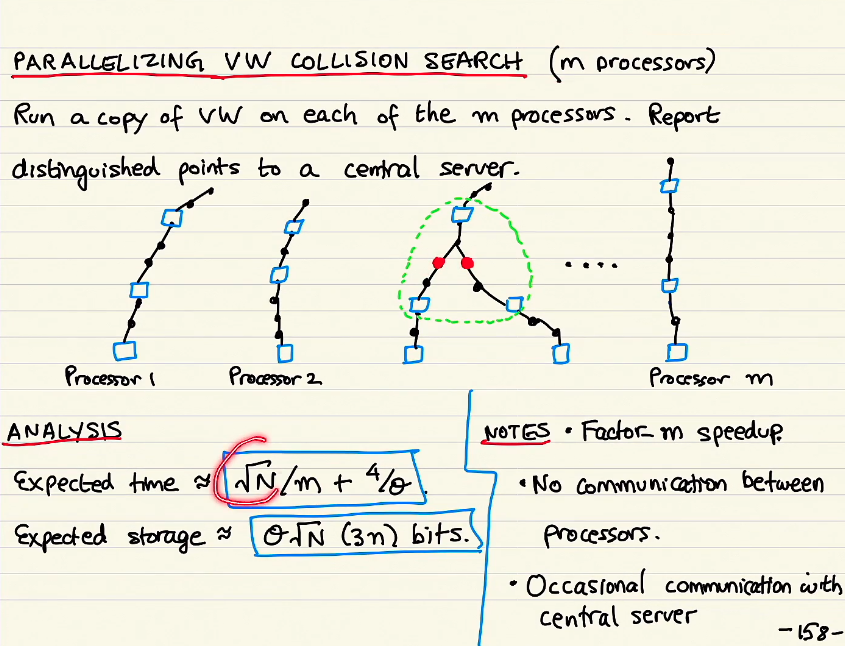 PARALLELIZING VW COLLISION SEARCH (m processors)
Run a copy of VW on each of the m processors. Report
distinguished points to a central server.
....
Processor 1
Processor 2
Processor m
ANALYSIS
Expected time ≈ √N/m + 4/θ.
Expected storage ≈ θ√N (3n) bits.
NOTES • Factor-m speedup.
• No communication between
processors.
• Occasional communication with
central server
-158-